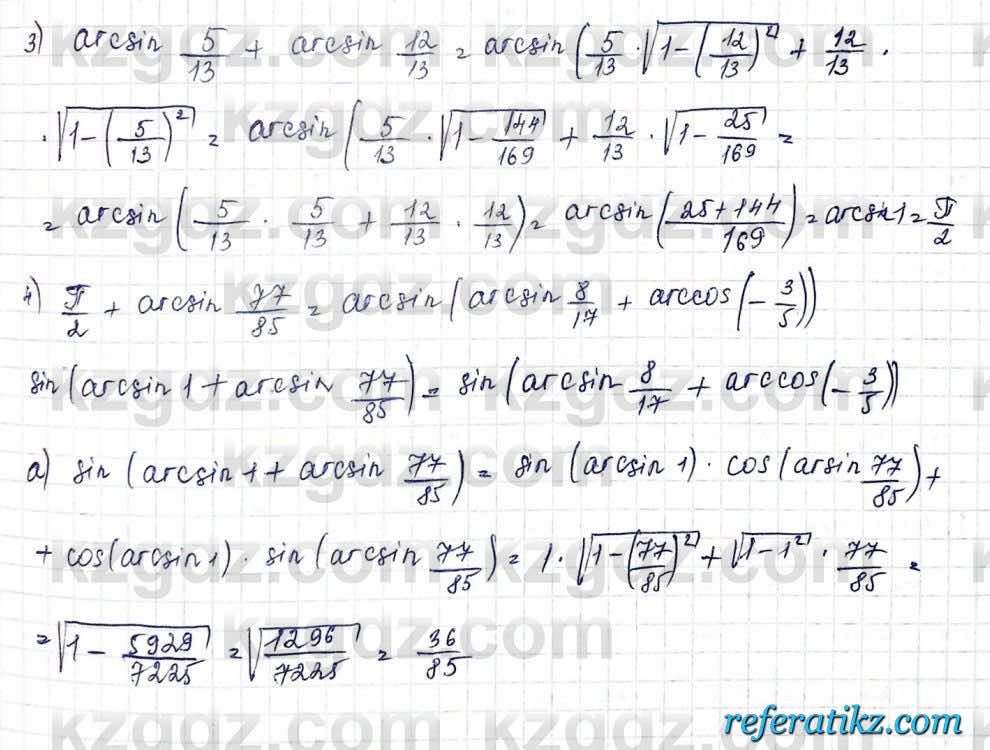 3) arcsin 5/13 + arcsin 12/13 = arcsin (5/13 · √(1-(12/13)²) + 12/13 ·
· √(1-(5/13)²) = arcsin (5/13 · √(1- 144/169) + 12/13 · √(1- 25/169) =
= arcsin (5/13 · 5/13 + 12/13 · 12/13) = arcsin (25+144/169) = arcsin 1 = π/2
4) π/2 + arcsin 77/85 = arcsin (arcsin 8/17 + arccos (- 3/5))
sin (arcsin 1 + arcsin 77/85) = sin (arcsin 8/17 + arccos (- 3/5))
a) sin (arcsin 1 + arcsin 77/85) = sin (arcsin 1) · cos (arsin 77/85) +
+ cos (arcsin 1) · sin (arcsin 77/85) = 1 · √(1-(77/85)²) + √(1-1²) · 77/85 =
= √(1 - 5929/7225) = √(1296/7225) = 36/85
referatikz.com
kzgdz.com